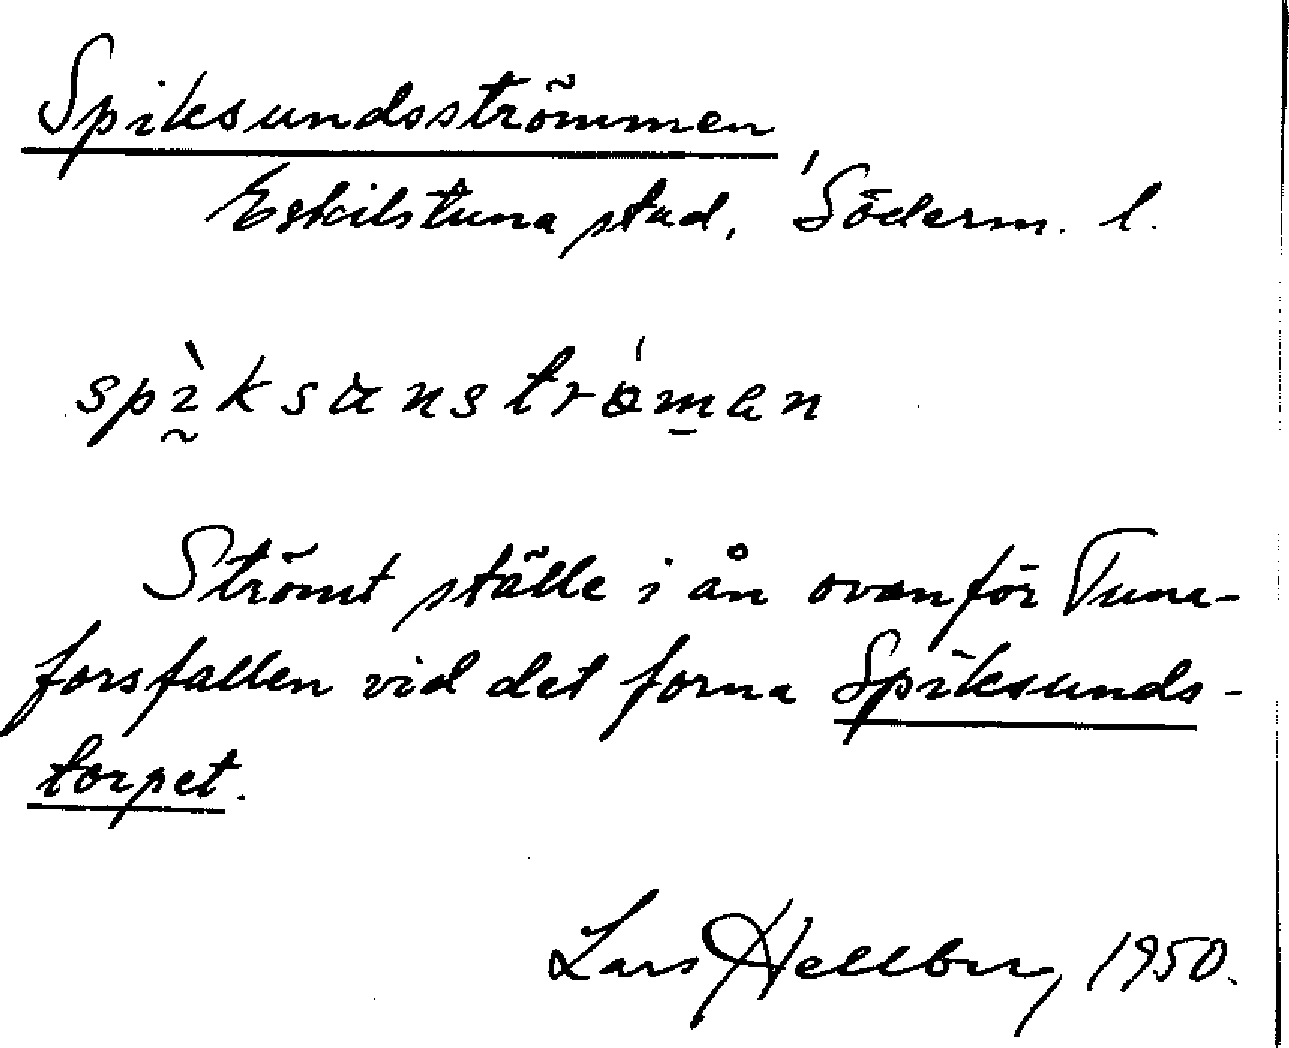 Spiksundsströmmen
Eskilstuna stad, Söderm. l.
spìksanstrǿman
Strömt ställe i ån ovanför Tuna-
forsfallen vid det forna Spiksunds-
torpet.
Lars Hellberg 1950.